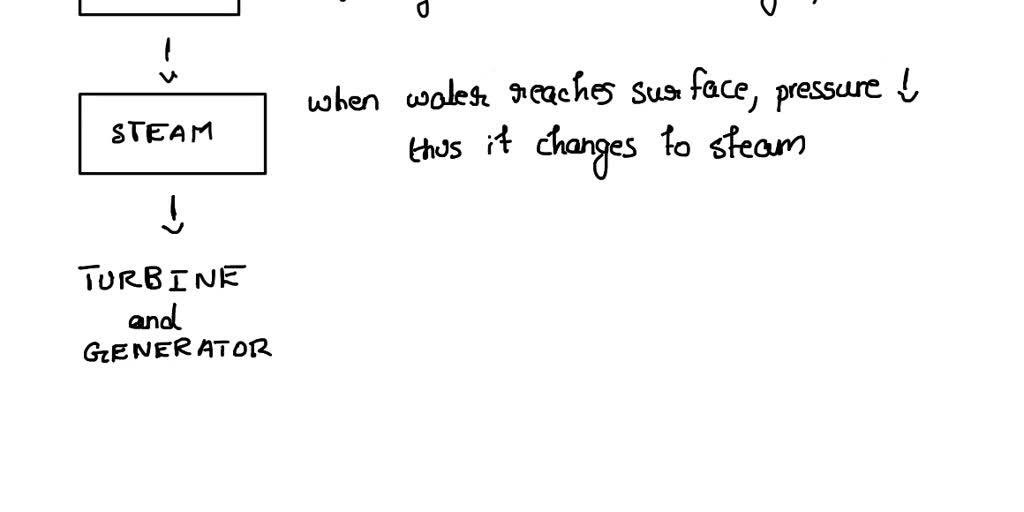 when water reaches surface, pressure ↓
STEAM
thus it changes to steam
TURBINE
and
GENERATOR